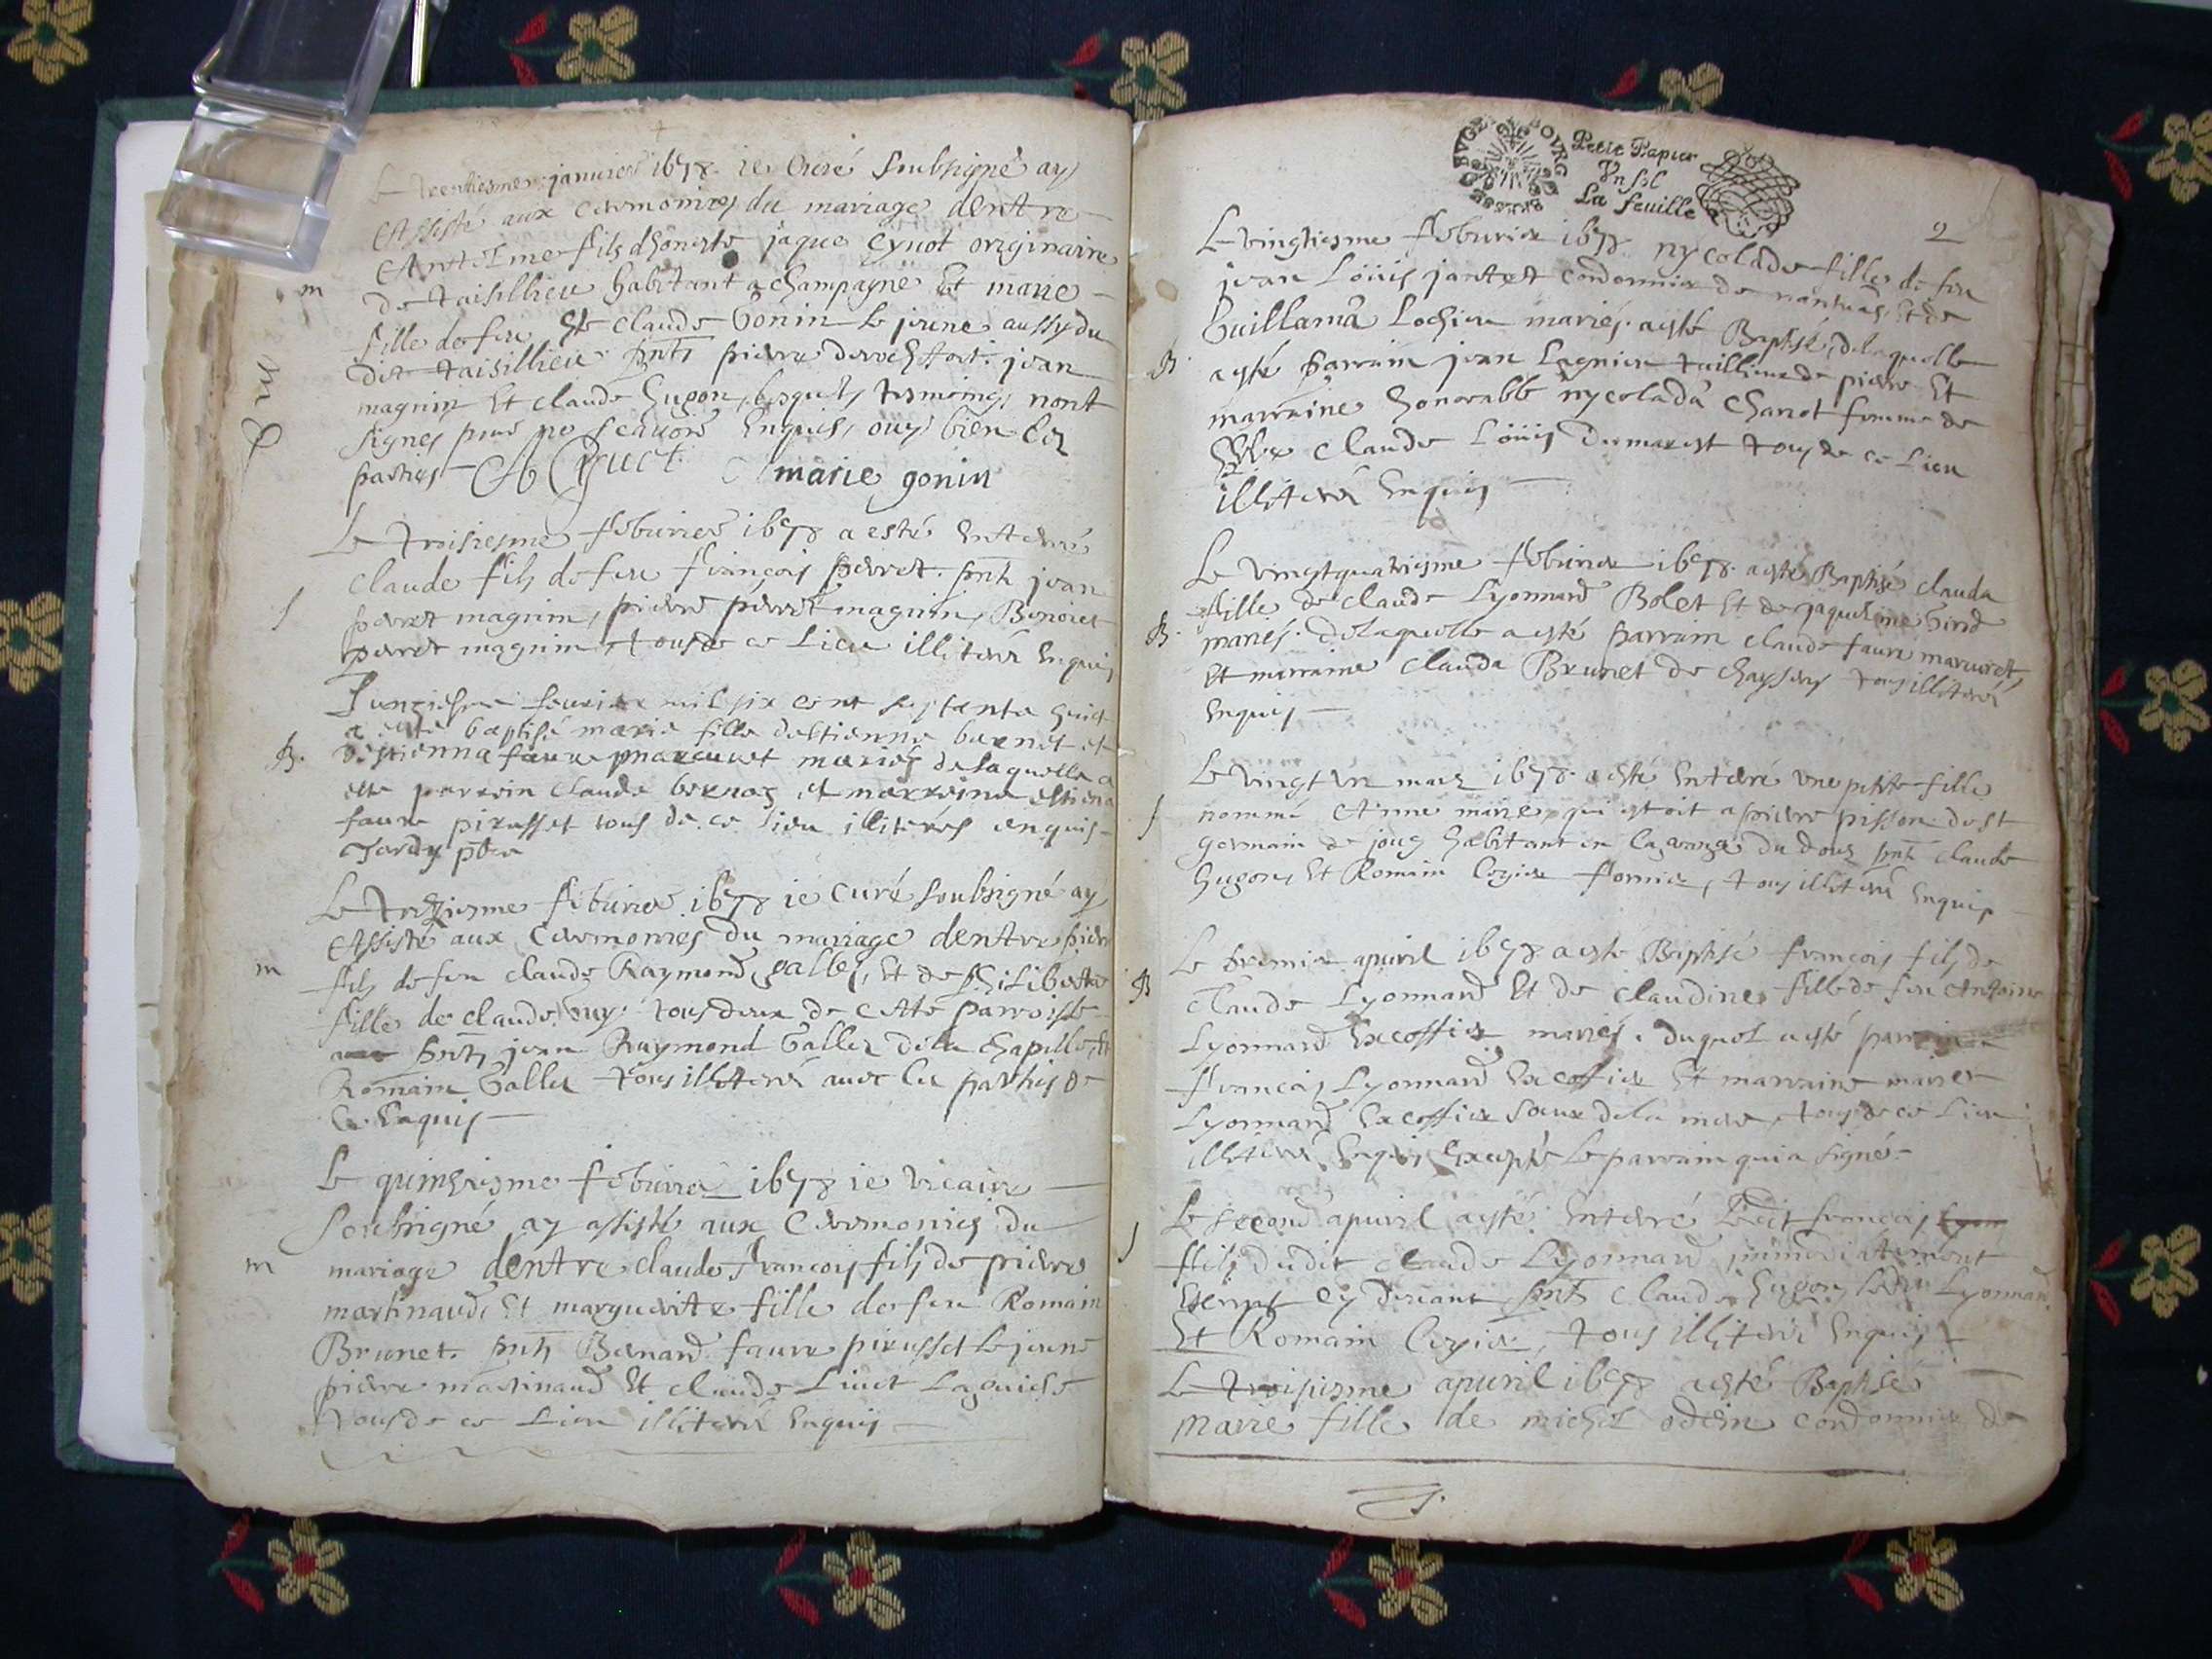 Le trentiesme janvier 1678 ie Curé soubsigné ay
Assisté aux Ceremonies du mariage dentre
Anthoine fils dhoneste jaque Cyuot originaire
de taisillieu habitant a Champagne Et marie
m
fille de feu Claude Gonin le jeune aussy du
dit taisillieu pnts pierre jean
magnin Et claude hugon, lesquels tesmoings nont
signes pour ne scauoir Enquis, ouy bien les
parties
marie gonin
Le troisiesme feburier 1678 a esté Enterré
Claude fils de feu françois perret. pnts jean
S
perret magnin, pierre perret magnin, Benoict
perret magnin, tous de ce Lieu illiteré Enquis
Lunziesme feurier mil six cent septante huict
a esté baptisé marie fille destienne bernet et
B.
destienna faure marcuret mariés de laquelle a
esté parrein claude bernaz et marreina estiena
faure pirasset tous de ce lieu illiterés enquis
Le treziesme feburier 1678 ie Curé soubsigné ay
Assisté aux Ceremonies du mariage dentre pierre
m
fils de feu claude Raymond galley, Et de philiberte
fille de claude tous deux de cette parroisse
pnts jean Raymond Gallez de la Chapelle, Et
Romain Gallez tous illiteré auec les parties de
ce Enquis
Le quinziesme feburier 1678 ie vicaire
soubsigné ay assisté aux Ceremonies du
m
mariage dentre claude françois fils de pierre
martinaud, Et marguerite fille de feu Romain
Brunet. pnts Bernard faure pirasset le jeune
pierre martinaud Et claude Liuet
tous de ce Lieu illiteré Enquis
BVGEY BOVRG BRESSE
Petit Papier
Vn sol
La feuille
2
Le vingtiesme feburier 1678 nycolade fille de feu
jean Loüis jantet Cordonnier de nantuas, Et de
Guillama Lochieu mariés. a esté Baptisé, de laquelle
B.
a esté parrain jean Lagnieu taillieur de pierre Et
marraine honorable nycolada Chanot femme de
Claude Loüis Dumarest tous de ce Lieu
illiteré Enquis
Le vingtquatriesme feburier 1678. a esté Baptisé clauda
fille de claude Lyonnard Bolet Et de jaquesme
B.
mariés. de laquelle a esté parrain claude faure marcuret,
Et marraine clauda Brunet de chaysery tous illiteré
Enquis
Le vingt un mars 1678. a esté Enterré une petite fille
nommé Anne marie, qui estoit a pierre pisson de st
S
germain de joug habitant en la du dous pnts claude
hugon, Et Romain Cozier fornier, tous illiteré Enquis
Le premier apuril 1678 a este Baptisé françois fils de
B
claude Lyonnard Et de claudine fille de feu Anthoine
Lyonnard Excoffier mariés. duquel a esté parrain
françois Lyonnard Excoffier Et marraine marie
Lyonnard Excoffier soeur de la mere, tous de ce Lieu
illiteré Enquis Excepté Le parrain qui a signé.
Le second apuril a esté Enterré Ledit françois
S
fils dudit claude Lyonnard immediatement
Escript cy deuant pnts Claude hugon ledit Lyonnard
Et Romain Cozier, tous illiteré Enquis
Le troisiesme apuril 1678 a esté Baptisé
marie fille de michel odein cordonnier de